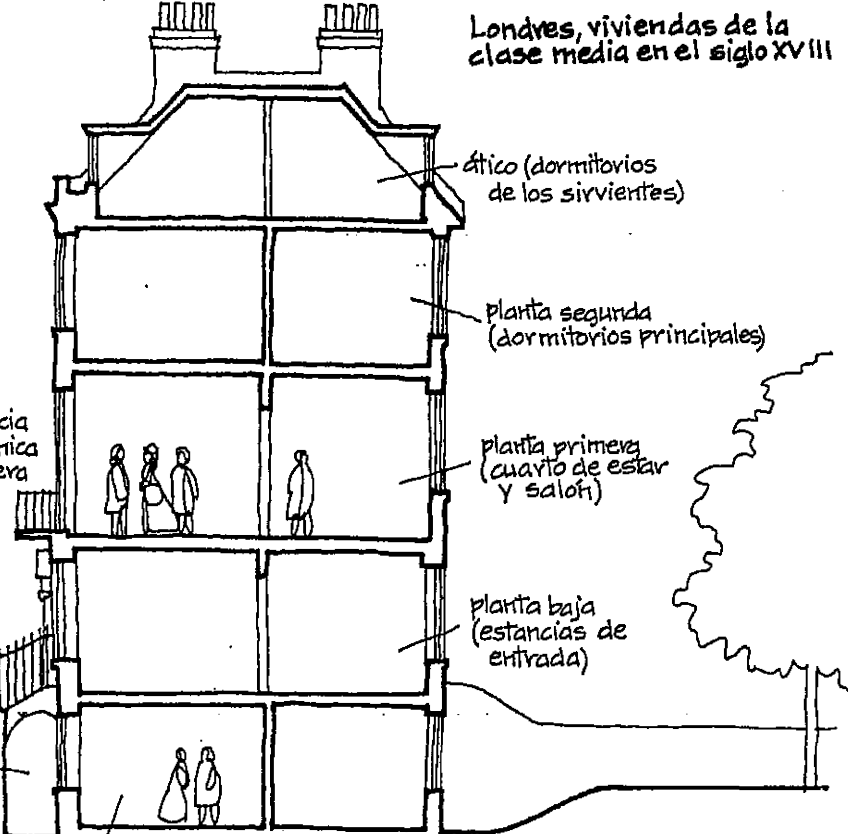 Londres, viviendas de la
clase media en el siglo XVIII
ático (dormitorios
de los sirvientes)
planta segunda
(dormitorios principales)
planta primera
(cuarto de estar
y salón)
planta baja
(estancias de
entrada)